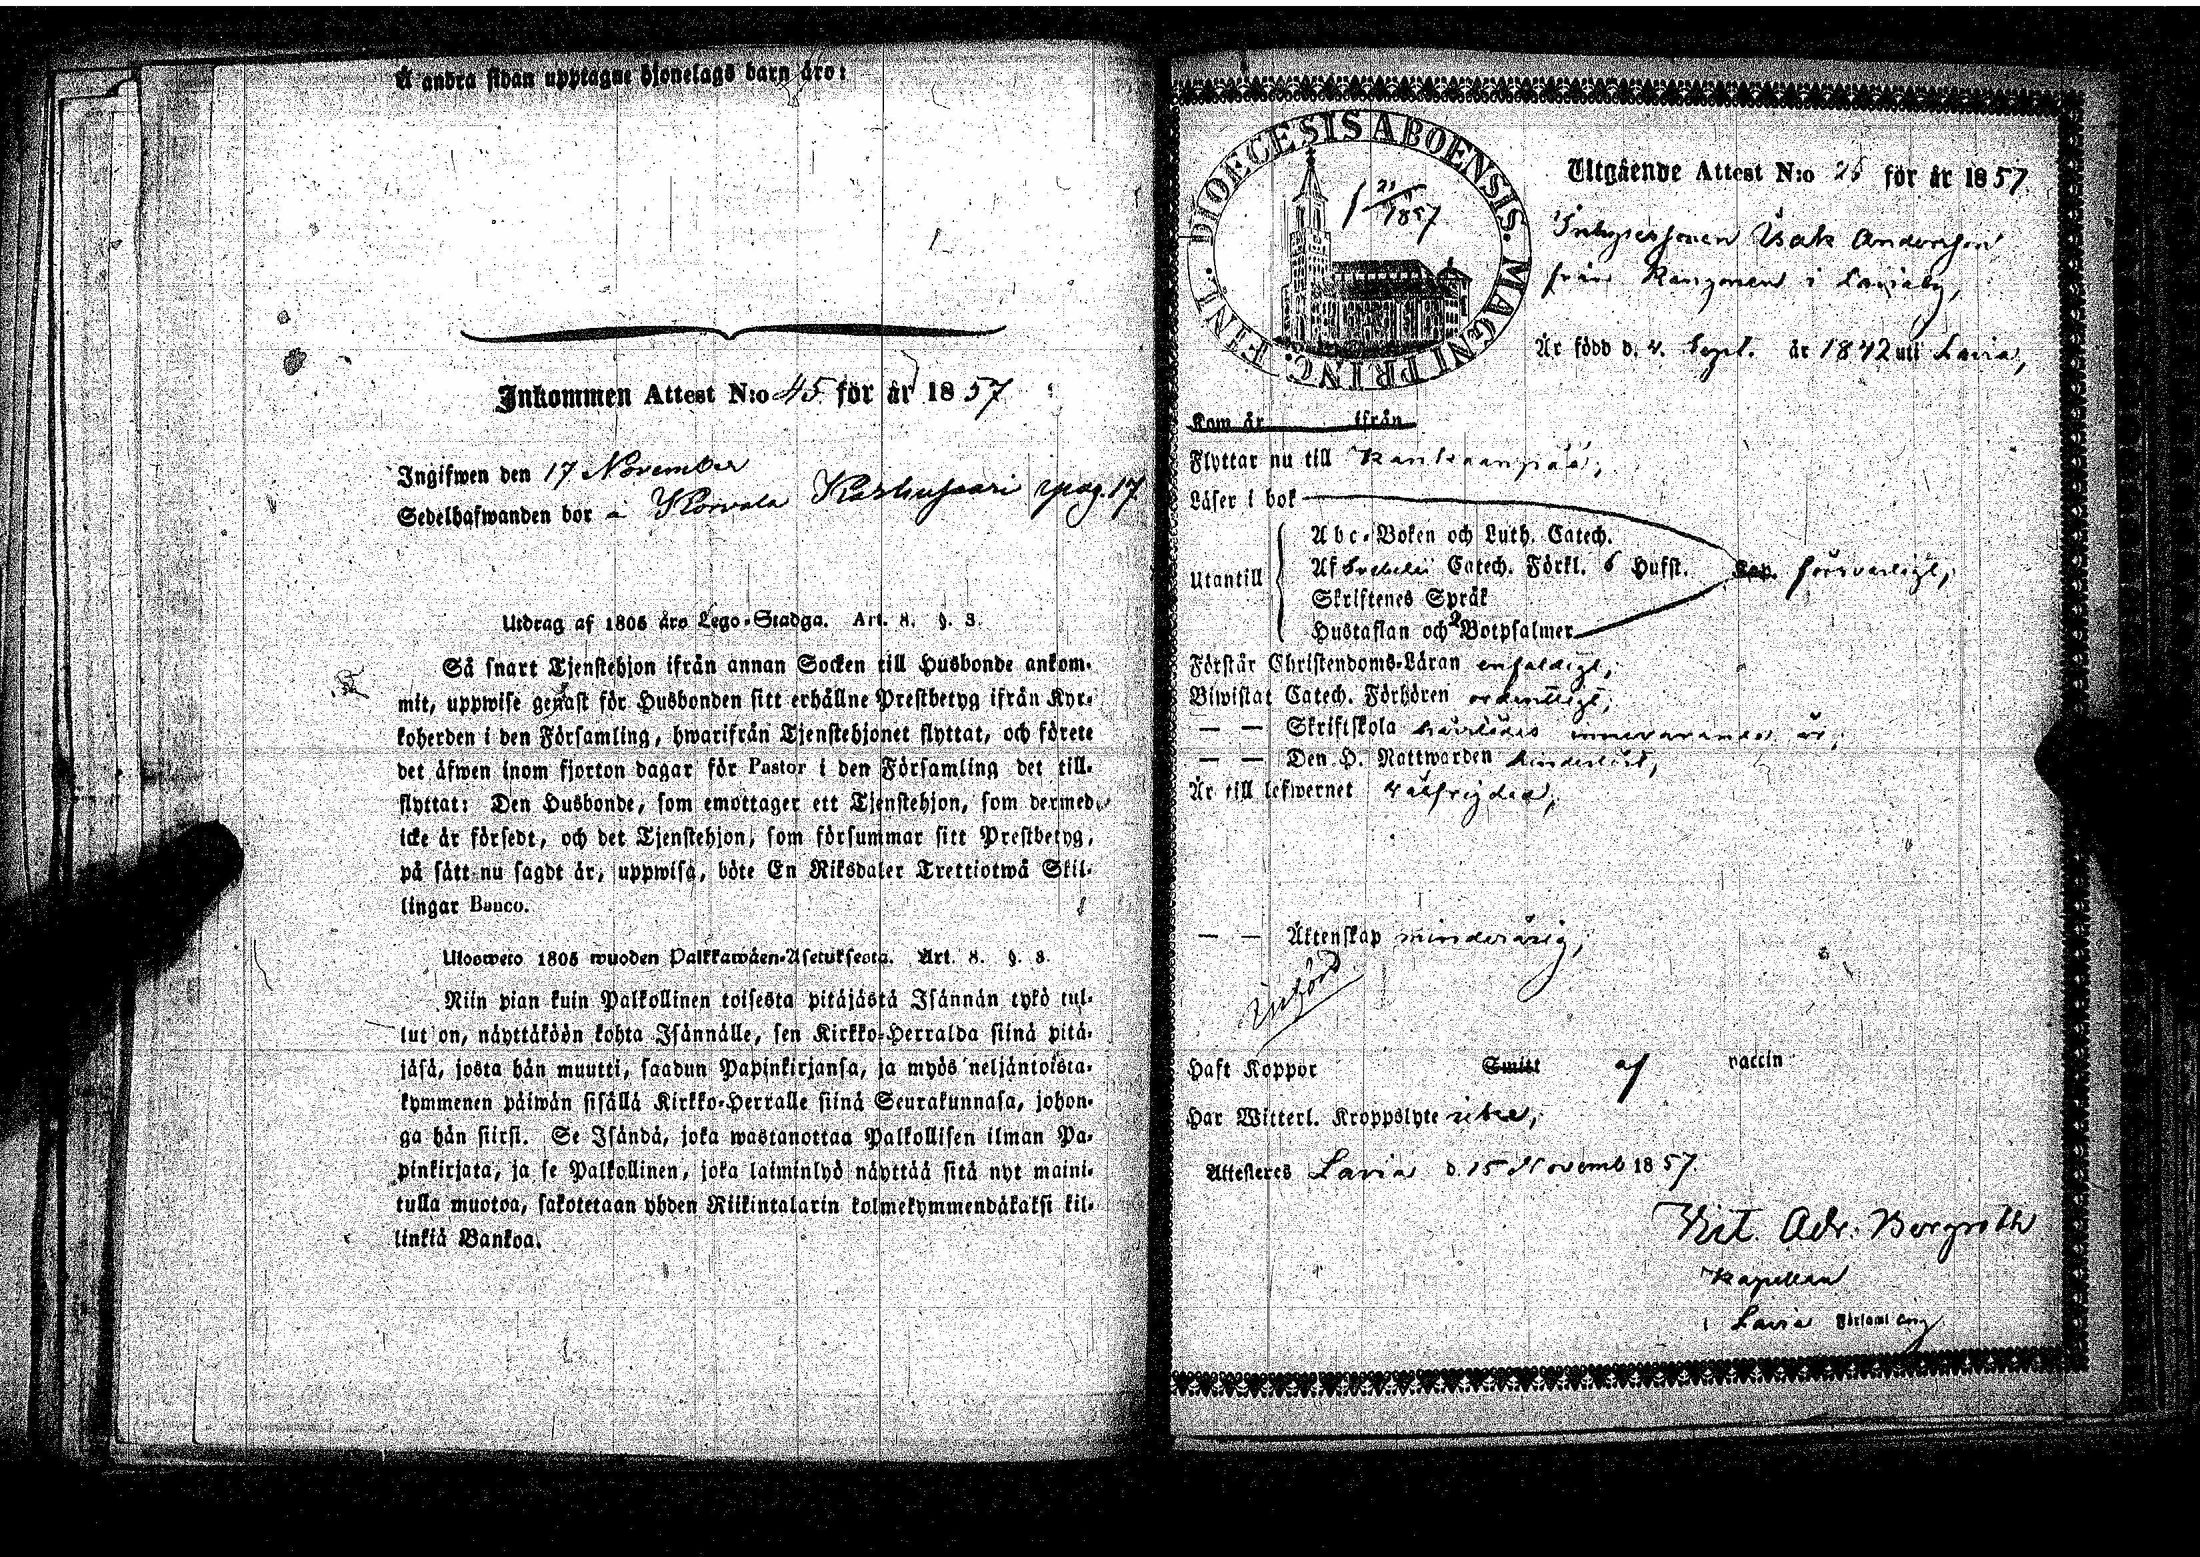 Å andra sidan upptagne hjonelags barn äro:
Inkommen Attest N:o 45 för år 1857
Ingifwen den 17 November
Sedelhafwanden bor å Korvala Karhusaari pag. 17
Utdrag af 1805 års Lego-Stadga. Art. 8. §. 3.
Så snart Tjenstehjon ifrån annan Socken till Husbonde ankom-
mit, uppwise genast för Husbonden sitt erhållne Prestbetyg ifrån Kyr-
koherden i den Församling, hwarifrån Tjenstehjonet flyttat, och förete
det äfwen inom fjorton dagar för Pastor i den Församling det till-
flyttat: Den Husbonde, som emottager ett Tjenstehjon, som dermed
icke är försedt, och det Tjenstehjon, som försummar sitt Prestbetyg,
på sätt nu sagdt är, uppwisa, böte En Riksdaler Trettiotwå Skil-
lingar Banco.
Ulosweto 1805 wuoden Palkkawäen-Asetuksesta. Art. 8. §. 3.
Niin pian kuin Palkollinen toisesta pitäjästä Isännän tykö tul-
lut on, näyttäköön kohta Isännälle, sen Kirkko-Herralda siinä pitä-
jäsä, josta hän muutti, saadun Papinkirjansa, ja myös neljäntoista-
kymmenen päiwän sisällä Kirkko-Herralle siinä Seurakunnasa, johon-
ga hän siirsi. Se Isändä, joka wastanottaa Palkollisen ilman Pa-
pinkirjata, ja se Palkollinen, joka laiminlyö näyttää sitä nyt maini-
tulla muotoa, sakotetaan yhden Riikintalarin kolmekymmendäkaksi kil-
linkiä Bankoa.
DIOECESIS ABOENSIS. MAGNI PRINC. FINL.
21/11 1857
Utgående Attest N:o 26 för år 1857
Inhysessonen Isak Andersson
från Kangonen i Laviaby,
Är född d. 4. Sept. år 1842 uti Lavia,
Kom år ifrån
Flyttar nu till Kankaanpää,
Läser i bok
Abc-Boken och Luth. Catech.
Utantill Af Svebelii Catech. Förkl. 6 Hufst. Cap. försvarligt,
Skriftenes Språk
Hustaflan och 2 Botpsalmer
Förstår Christendoms-Läran enfaldigt,
Biwistat Catech. Förhören ordentligt,
— — Skriftskola innevarande år,
— — Den H. Nattwarden
Är till lefwernet välfrejdad,
— — Äktenskap minderårig,
Införd
Haft Koppor Smitt af vaccin
Har Witterl. Kroppslyte icke,
Attesteres Lavia d. 15 Novemb 1857.
Krit. Adr. Borgroth
Kapellan
i Lavia Församling